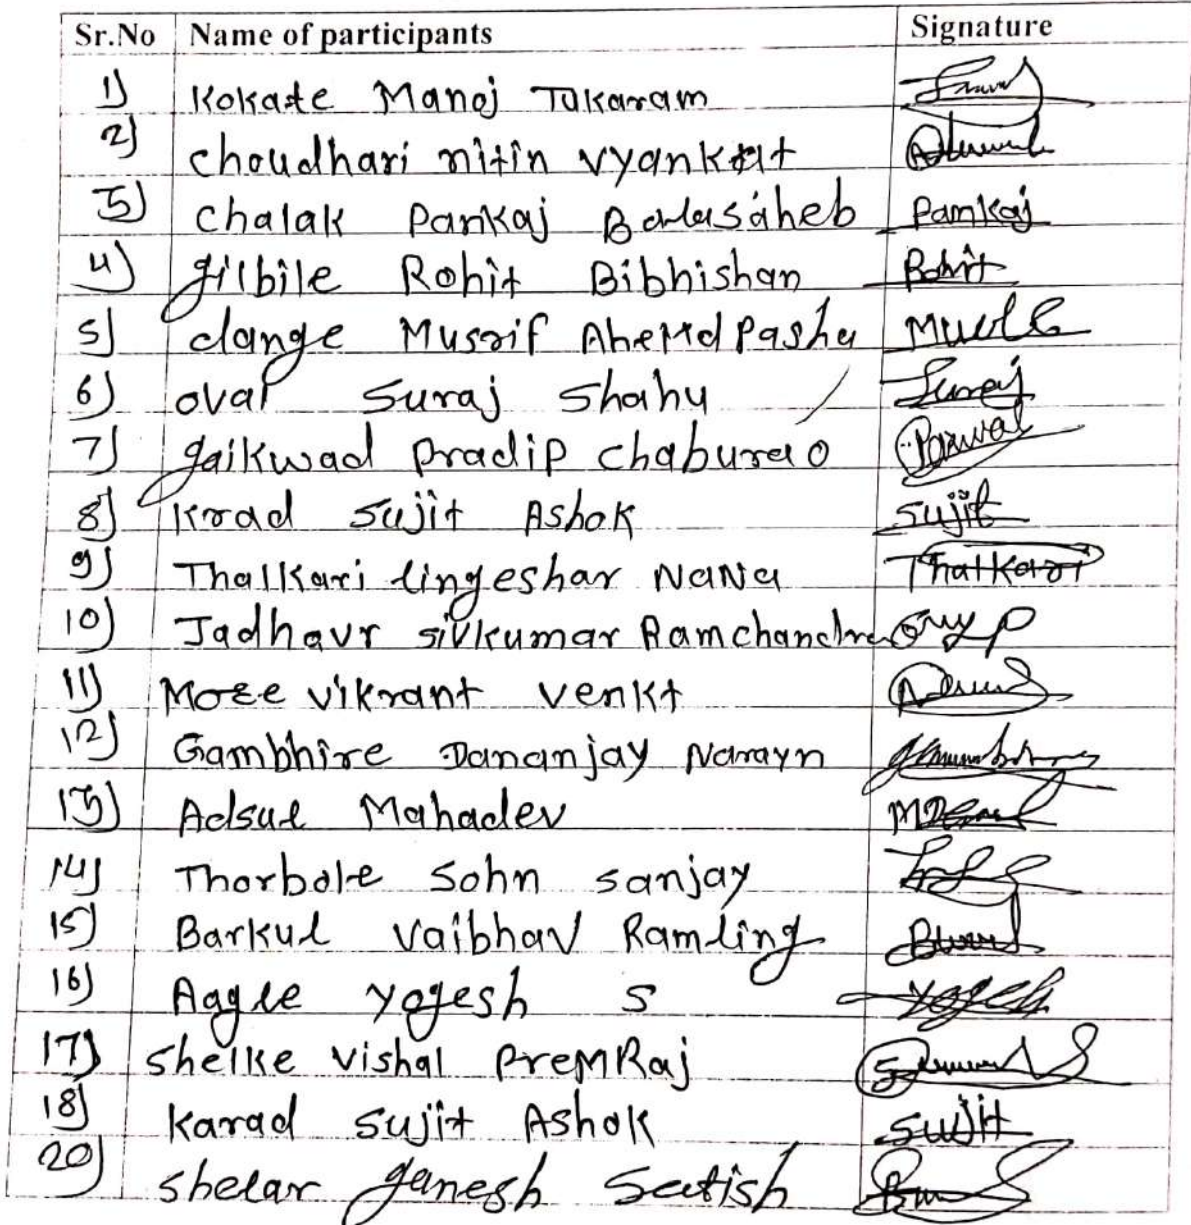 Sr.No Name of participants Signature
1) Kokate Manoj Tukaram
2) choudhari nitin vyankat
3) chalak Pankaj Balasaheb Pankaj
4) gilbile Rohit Bibhishan Rohit
5) dange Musrif AheMdPasha
6) oval Suraj Shahu Suraj
7) gaikwad Pradip chaburao
8) Krad Sujit Ashok Sujit
9) Thalkari lingeshar NaNa Thalkari
10) Jadhavr sivkumar Ramchandra
11) Moze vikrant venkt
12) Gambhire Dananjay Narayn
13) Adsul Mahadev
14) Thorbole Sohn sanjay
15) Barkul Vaibhav Ramling
16) Aagle yogesh S yogesh
17) Shelke Vishal PreMRaj
18) Karad Sujit Ashok Sujit
20) shelar ganesh Satish